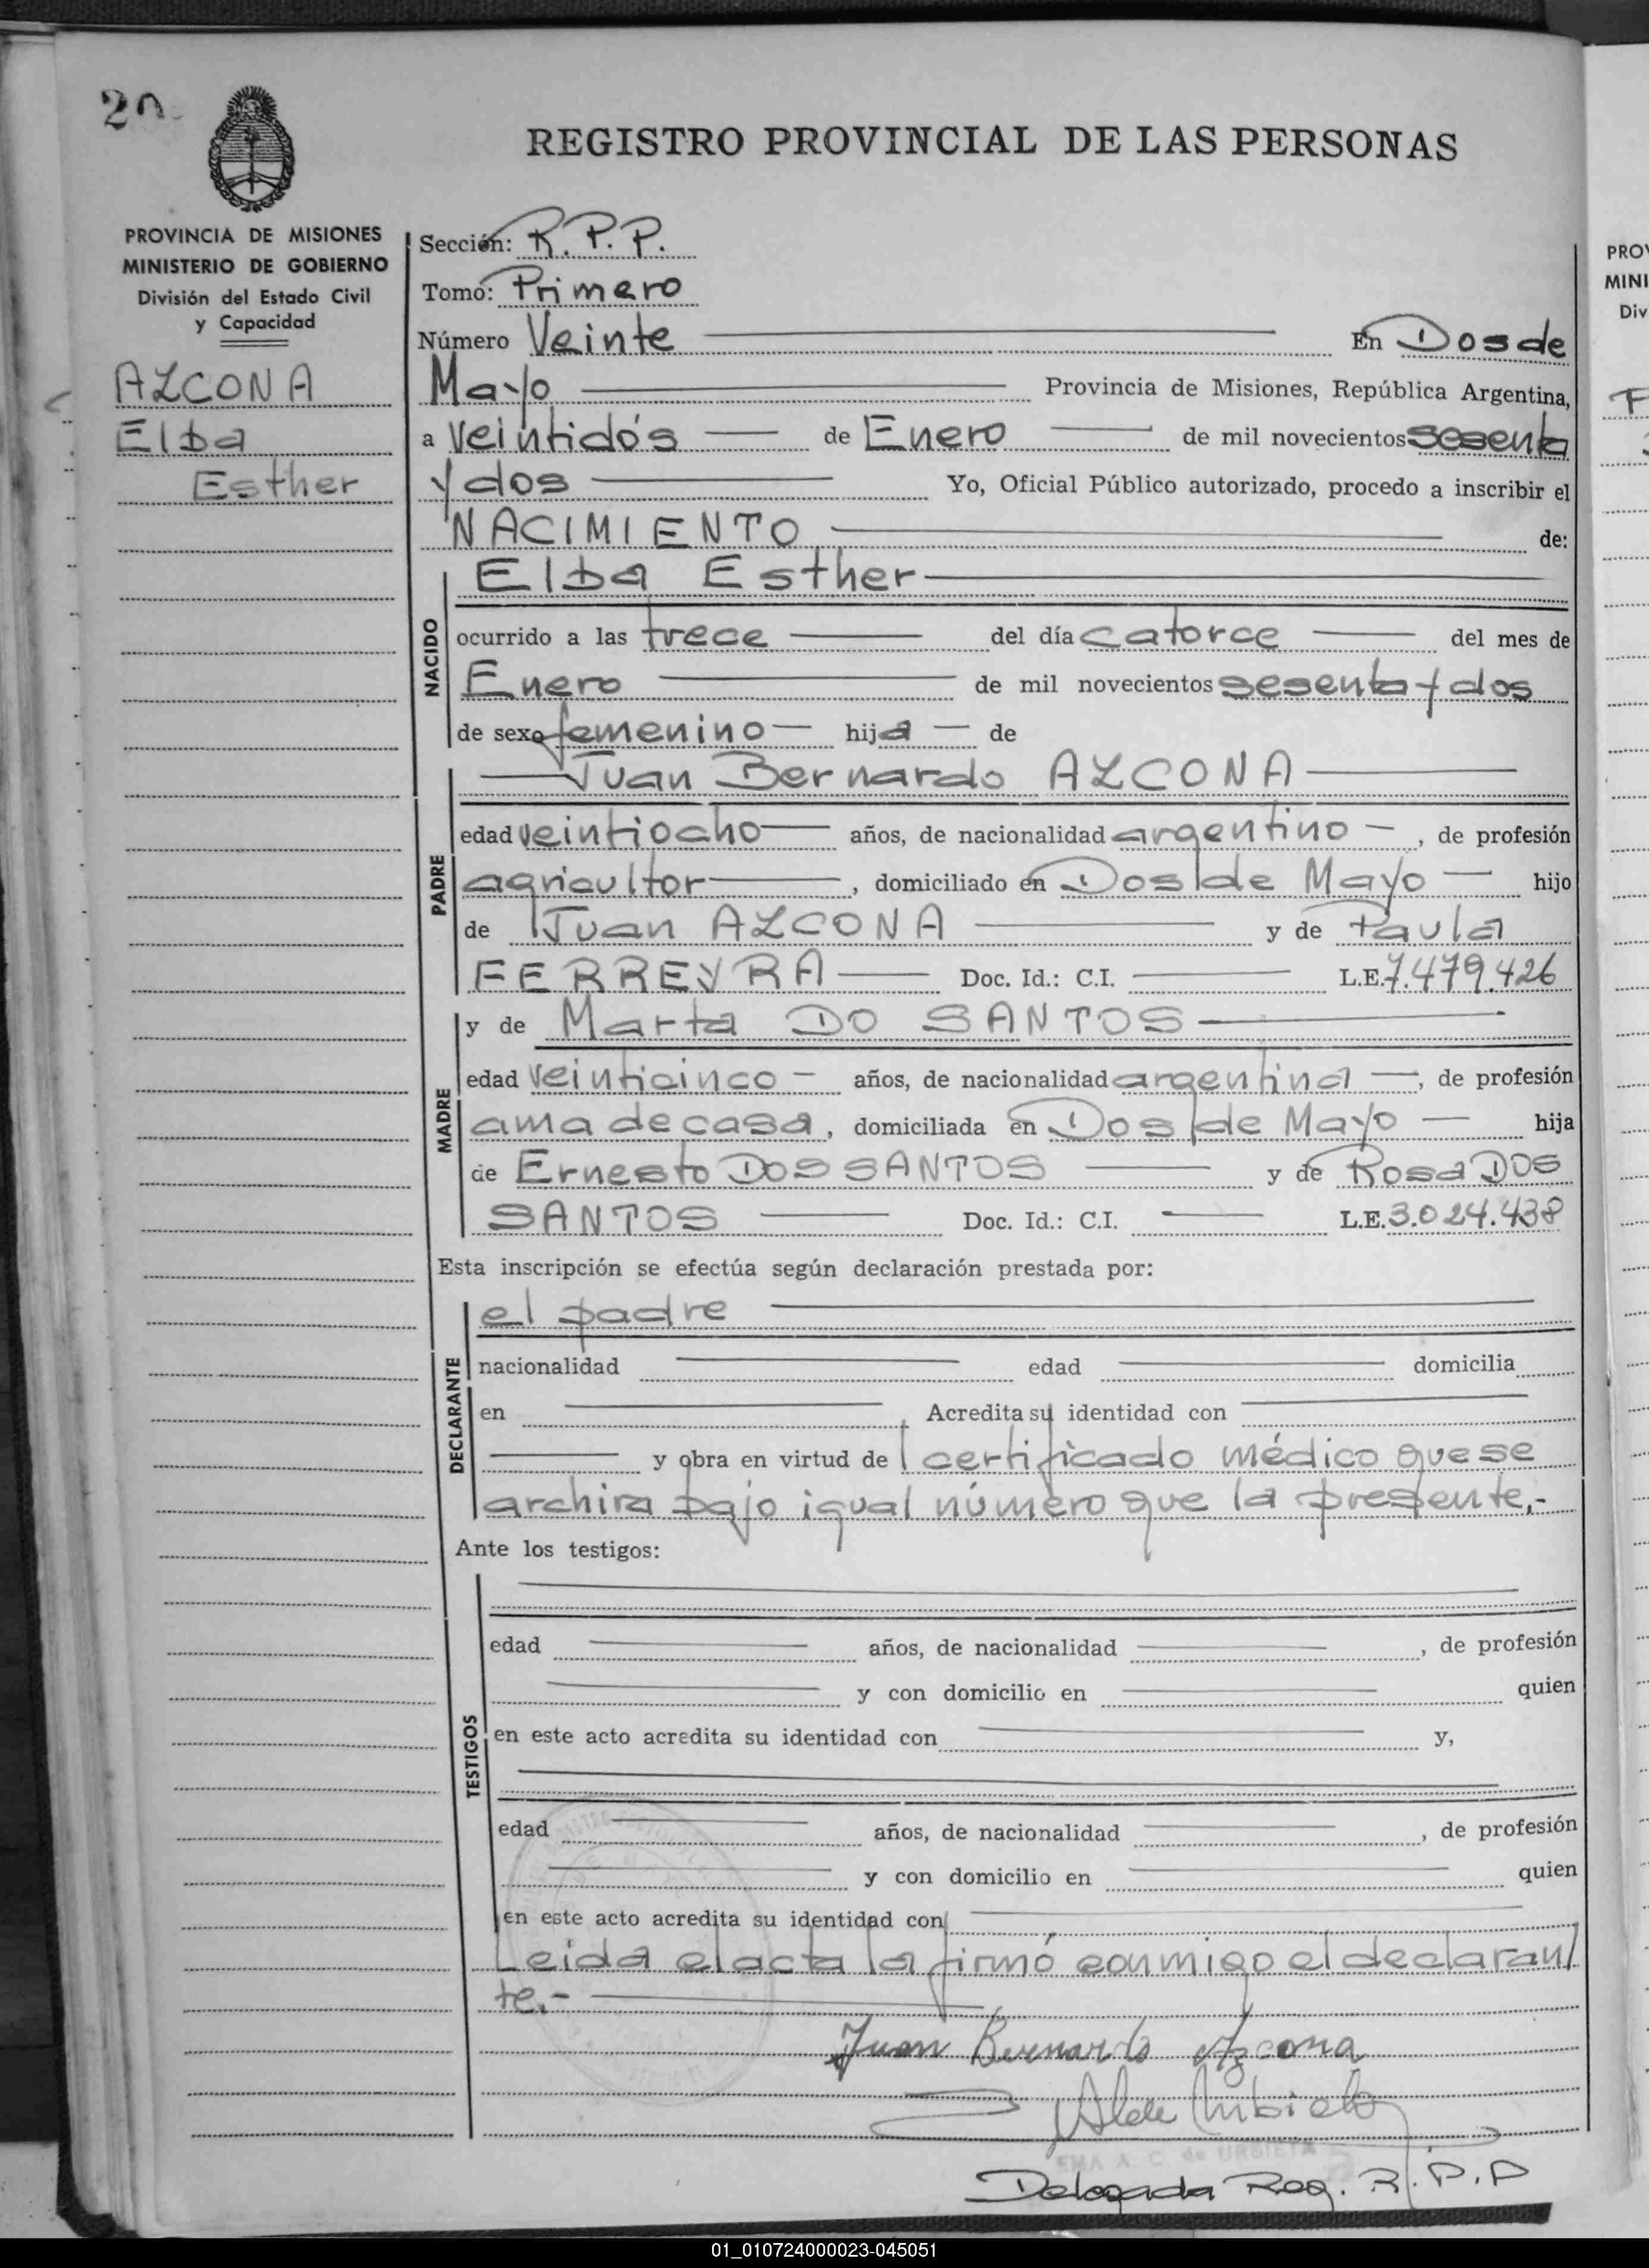 20
REGISTRO PROVINCIAL DE LAS PERSONAS
PROVINCIA DE MISIONES
MINISTERIO DE GOBIERNO
División del Estado Civil
y Capacidad
AZCONA
Elba
Esther
Sección: R.P.P.
Tomo: Primero
Número Veinte En Dos de
Mayo Provincia de Misiones, República Argentina,
a veintidós de Enero de mil novecientos sesenta
y dos Yo, Oficial Público autorizado, procedo a inscribir el
NACIMIENTO de:
NACIDO
Elba Esther
ocurrido a las trece del día catorce del mes de
Enero de mil novecientos sesenta y dos
de sexo femenino hija de
Juan Bernardo AZCONA
PADRE
edad veintiocho años, de nacionalidad argentino, de profesión
agricultor, domiciliado en Dos de Mayo hijo
de Juan AZCONA y de Paula
FERREYRA Doc. Id.: C.I. L.E. 7.479.426
y de Marta DO SANTOS
MADRE
edad veinticinco años, de nacionalidad argentina, de profesión
ama de casa, domiciliada en Dos de Mayo hija
de Ernesto DOS SANTOS y de Rosa DOS
SANTOS Doc. Id.: C.I. L.E. 3.024.438
Esta inscripción se efectúa según declaración prestada por:
DECLARANTE
el padre
nacionalidad edad domicilia
en Acredita su identidad con
y obra en virtud de certificado médico que se
archiva bajo igual número que la presente.-
Ante los testigos:
TESTIGOS
edad años, de nacionalidad , de profesión
y con domicilio en quien
en este acto acredita su identidad con y,
edad años, de nacionalidad , de profesión
y con domicilio en quien
en este acto acredita su identidad con
Leida el acta la firmó conmigo el declaran/
te.-
Juan Bernardo Azcona
EMA A. C. de URBIETA
Delegada Reg. R.P.P
PROV
MINI
Div
01_010724000023-045051